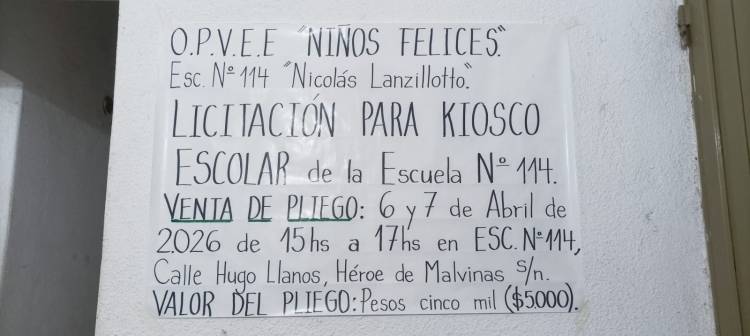 O.P.V.E.E "NIÑOS FELICES".
Esc. Nº 114 "Nicolás Lanzillotto".
LICITACIÓN PARA KIOSCO
ESCOLAR de la Escuela Nº 114.
VENTA DE PLIEGO: 6 y 7 de Abril de
2026 de 15hs a 17hs en ESC. Nº 114,
Calle Hugo Llanos, Héroe de Malvinas s/n.
VALOR DEL PLIEGO: Pesos cinco mil ($5000).